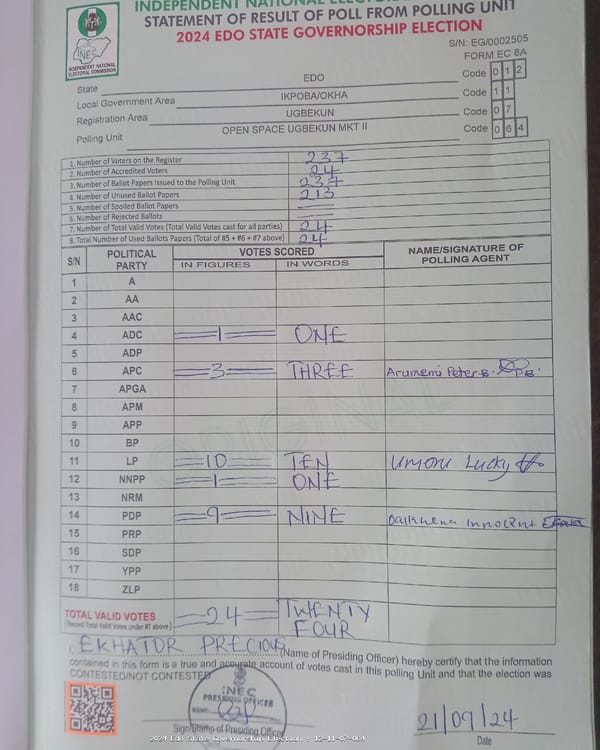 INDEPENDENT NATIONAL
STATEMENT OF RESULT OF POLL FROM POLLING UNIT
2024 EDO STATE GOVERNORSHIP ELECTION
INEC
INDEPENDENT NATIONAL ELECTORAL COMMISSION
S/N: EG/0002505
FORM EC 8A
State EDO Code 0 1 2
Local Government Area IKPOBA/OKHA Code 1 1
Registration Area UGBEKUN Code 0 7
Polling Unit OPEN SPACE UGBEKUN MKT II Code 0 6 4
1. Number of Voters on the Register 237
2. Number of Accredited Voters 24
3. Number of Ballot Papers Issued to the Polling Unit 237
4. Number of Unused Ballot Papers 213
5. Number of Spoiled Ballot Papers
6. Number of Rejected Ballots
7. Number of Total Valid Votes (Total Valid Votes cast for all parties) 24
8. Total Number of Used Ballots Papers (Total of #5 + #6 + #7 above) 24
S/N POLITICAL PARTY VOTES SCORED NAME/SIGNATURE OF POLLING AGENT
IN FIGURES IN WORDS
1 A
2 AA
3 AAC
4 ADC 1 ONE
5 ADP
6 APC 3 THREE Arumemi Peter.B.
7 APGA
8 APM
9 APP
10 BP
11 LP 10 TEN Umoru Lucky
12 NNPP 1 ONE
13 NRM
14 PDP 9 NINE Innocent
15 PRP
16 SDP
17 YPP
18 ZLP
TOTAL VALID VOTES 24 TWENTY FOUR
(Record Total Valid Votes under #7 above)
I, EKHATOR PRECIOUS (Name of Presiding Officer) hereby certify that the information
contained in this form is a true and accurate account of votes cast in this polling Unit and that the election was
CONTESTED/NOT CONTESTED
INEC
PRESIDING OFFICER
21/09/24
Sign/Stamp of Presiding Officer
Date
2024 Edo State Governorship Election - 12-11-07-064
ORIGINAL